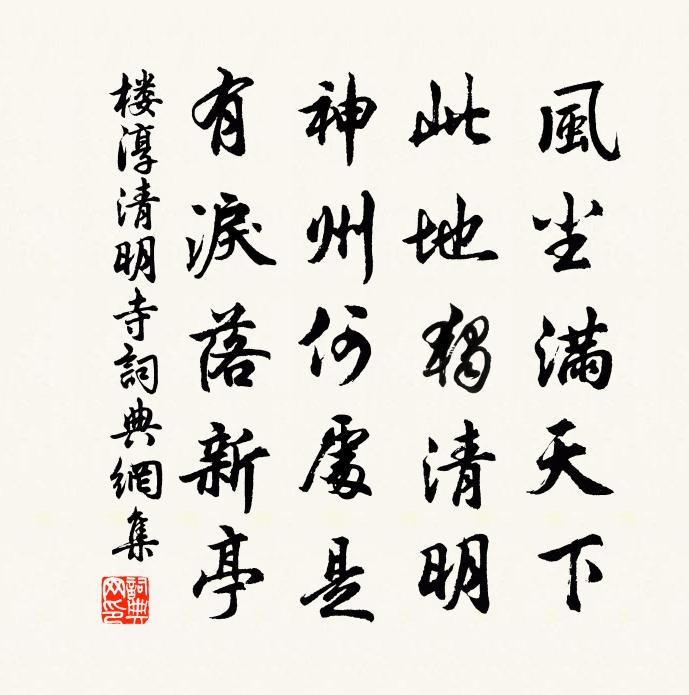 風尘滿天下
此地獨清明
神州何處是
有淚落新亭
楼淳清明寺詞典網集
詞典
网印